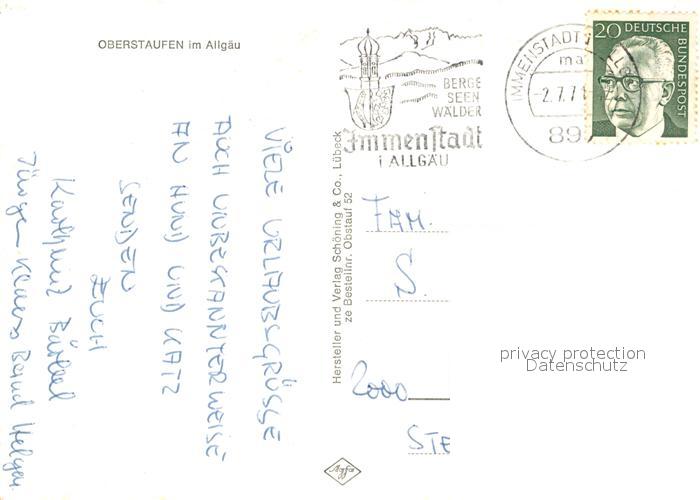 OBERSTAUFEN im Allgäu
VIELE URLAUBSGRÜSSE
AUCH UNBEKANNTERWEISE
AN HUND UND KATZ
SENDEN
EUCH
Karlheinz Bärbel
Jürgen Klaus Bernd Helga
Hersteller und Verlag Schöning & Co., Lübeck
ze Bestellnr. Obstauf 52
BERGE
SEEN
WÄLDER
Immenstadt
i ALLGÄU
IMMENSTADT
-2.7.7
89
20 DEUTSCHE
BUNDESPOST
FAM.
S.
2000
STE
privacy protection
Datenschutz
Agfa